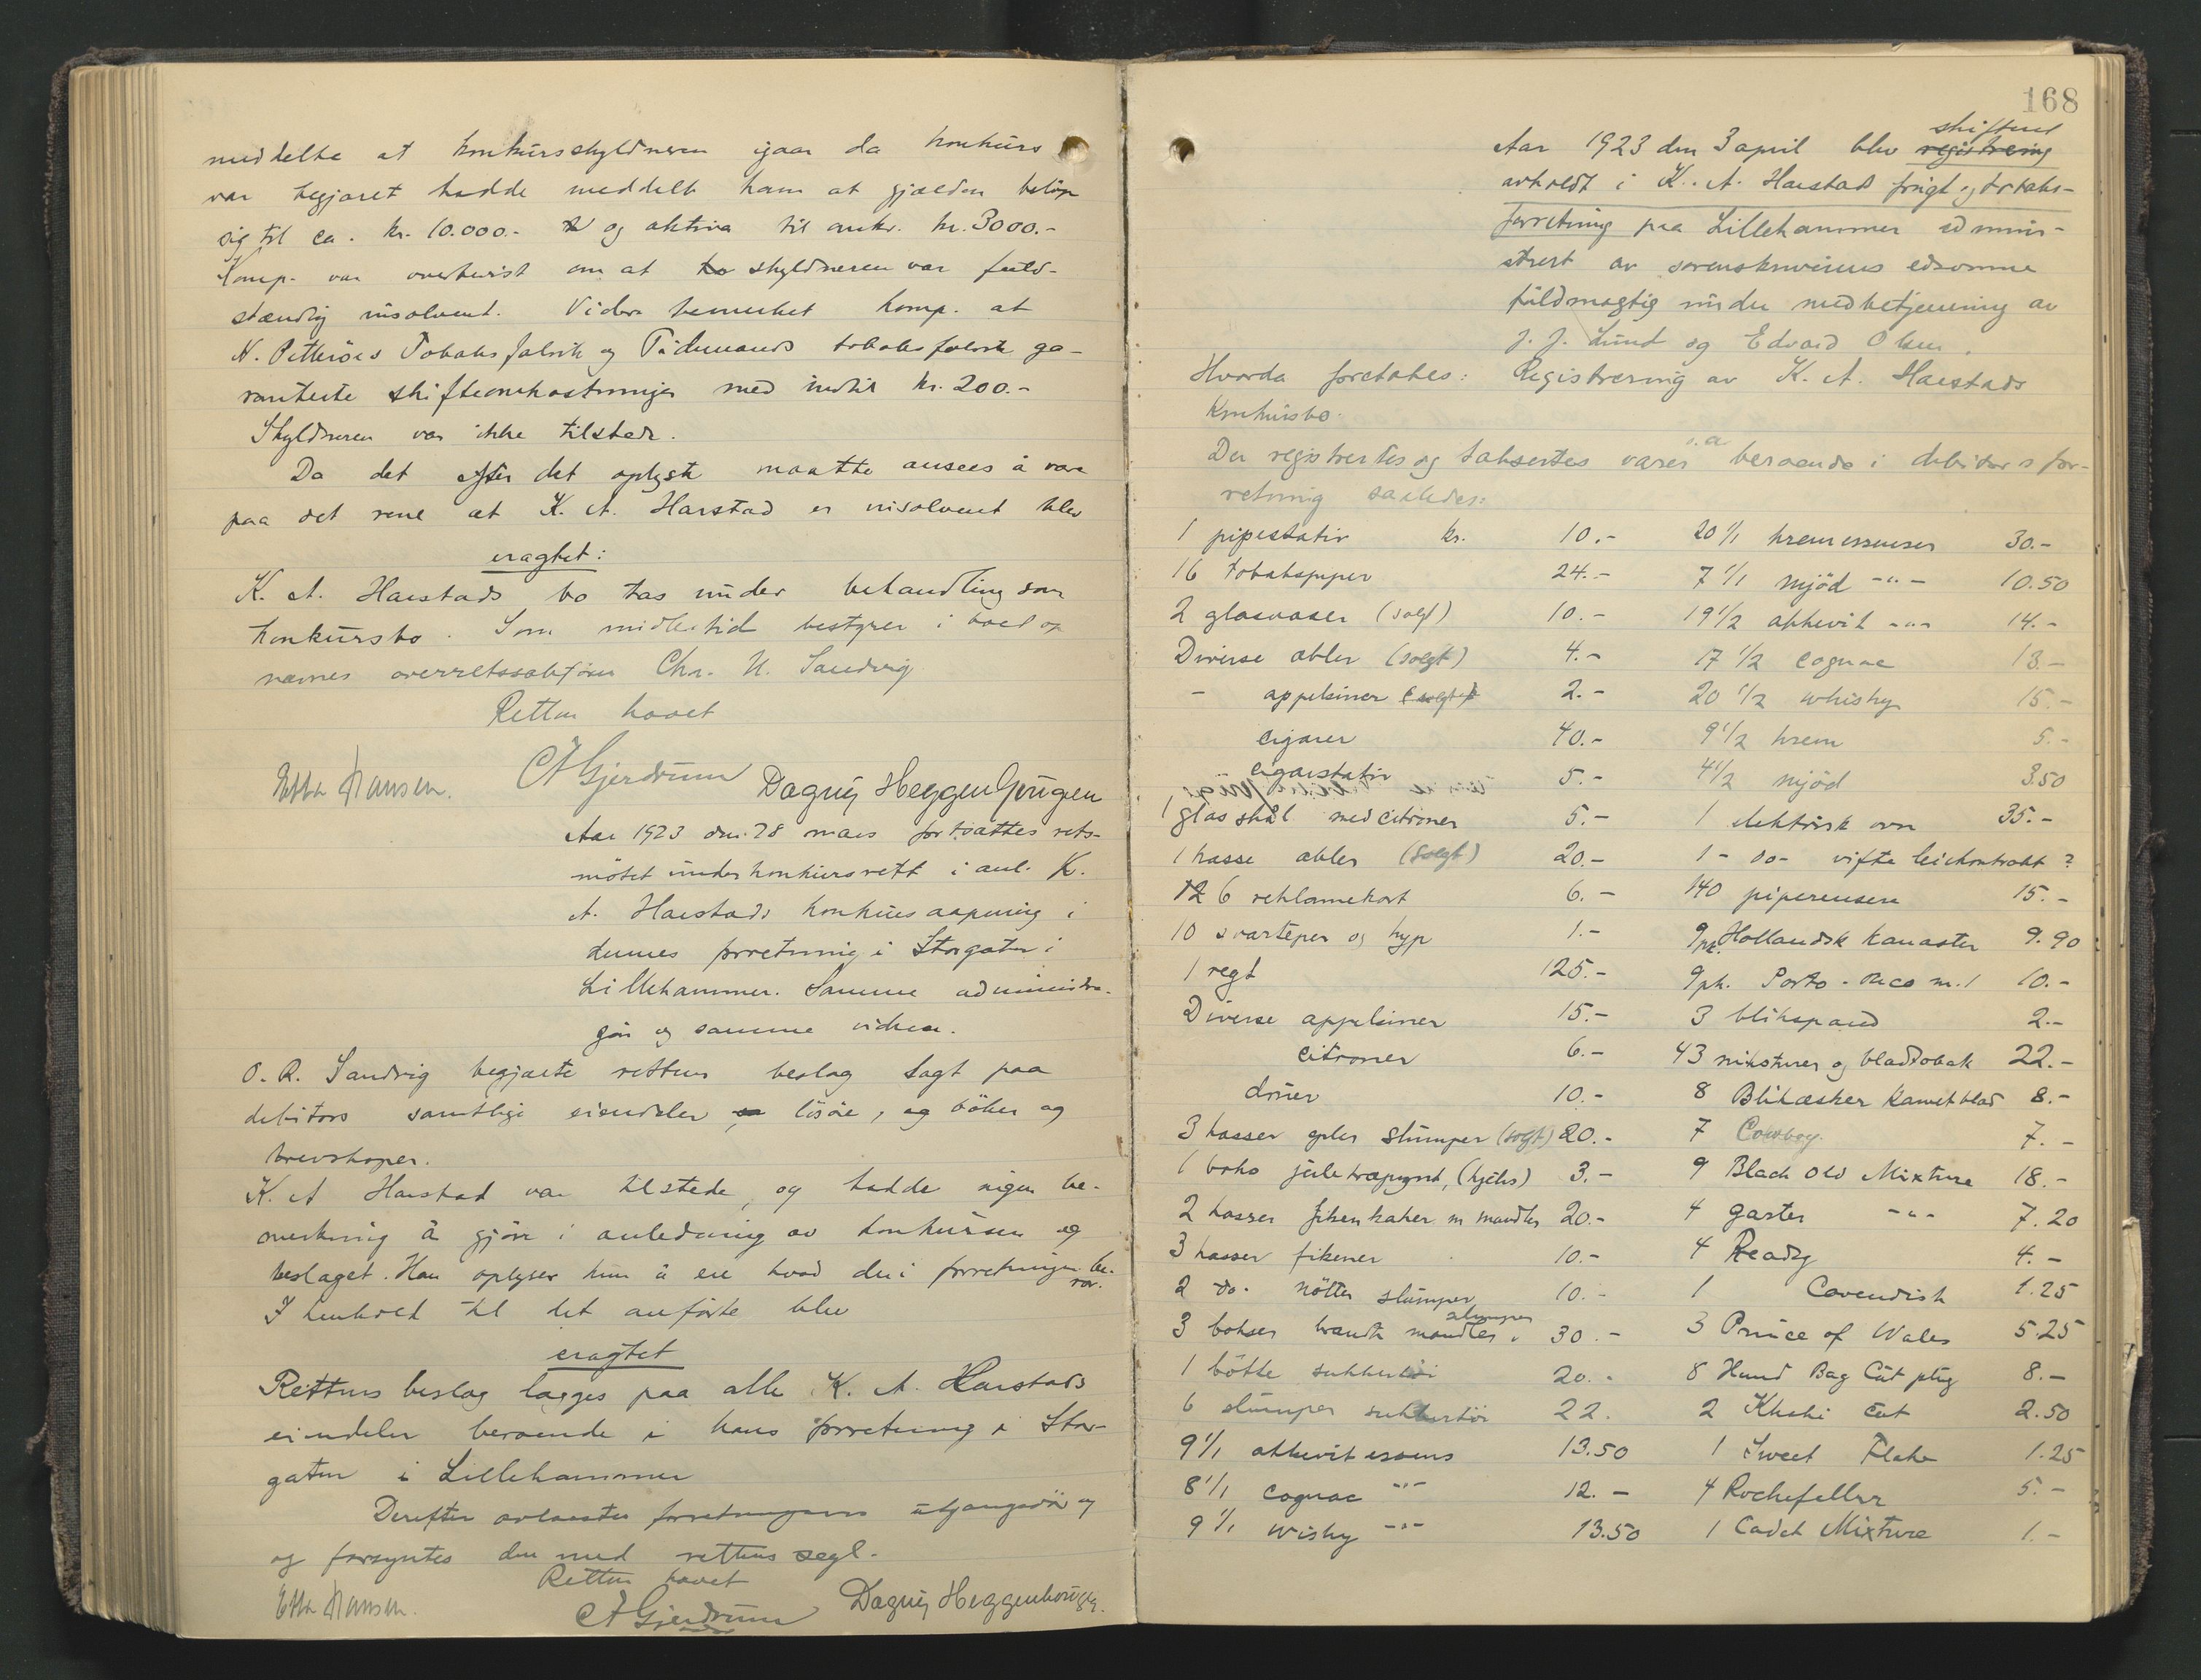 meddelte at konkursskyldneren igaar da konkurs
var begjæret hadde meddelt ham at gjælden beløp
sig til ca. kr. 10.000.- og aktiva til ca. kr. 3000.-
Komp. var overbevist om at skyldneren var fuld-
stændig insolvent. Videre bemerket komp. at
H. Petterøes Tobaksfabrik og Tidemands tobaksfabrik ga-
ranterte skifteomkostninger med indtil kr. 200.-
Skyldneren var ikke tilstede.
Da det efter det oplyste maatte ansees å være
paa det rene at K. A. Harstad er insolvent blev
eragtet:
K. A. Harstads bo tas under behandling som
konkursbo. Som midlertidig bestyrer i boet op
nævnes overretssakfører Chr. H. Sandvig
Retten hævet
Etta Hansen. CA Gjerdrum Dagny Heggenhougen
Aar 1923 den 28 mars fortsattes rets-
møtet under konkursrett i anl. K.
A. Harstads konkursaapning i
dennes forretning i Storgaten i
Lillehammer. Samme administra-
tor og samme vidner.
O.R. Sandvig begjærte rettens beslag lagt paa
debitors samtlige eiendeler løsøre, og bøker og
brevskaper.
K. A Harstad var tilstede, og hadde ingen be-
merkning å gjøre i anledning av konkursen og
beslaget. Han oplyser kun å eie hvad der i forretningen be-
ror.
I henhold til det anførte blev
eragtet
Rettens beslag lægges paa alle K. A. Harstads
eiendeler beroende i hans forretning i Stor-
gaten i Lillehammer
Derefter avlaastes forretningens utgangsdør og
og forsyntes den med rettens segl.
Retten hævet
Etta Hansen. CA Gjerdrum Dagny Heggenhougen.
168
skifteret
Aar 1923 den 3 april blev registrering
avholdt i K. A. Harstad frugt og tobaks-
forretning paa Lillehammer adminis-
trert av sorenskriverens edsvorne
fuldmægtig under medbetjening av
J. J. Lund og Edvard Olsen.
Hvorda foretokes: Registrering av K. A. Harstads
Konkursbo.
Der registrertes og taksertes varer o.a. beroende i debitors for-
retning saaledes:
1 pipestativ kr. 10.- 20 1/1 kremessenser 30.-
16 tobakspiper 24.- 7 1/1 mjød -"- 10.50
2 glasvaser (solgt) 10.- 19 1/2 akkevit -"- 14.-
Diverse æbler (solgt) 4.- 17 1/2 cognac 13.-
- appelsiner (solgt) 2.- 20 1/2 whisky 15.-
cigarer 40.- 9 1/2 krem 5.-
cigarstativ 5.- 4 1/2 mjød 3.50
1 glasskål med citroner 5.- 1 elektrisk ovn 35.-
1 kasse æbler (solgt) 20.- 1 - do- vifte leiekontrakt ?
126 reklamekort 6.- 140 piperensere 15.-
10 svarteper og hyp 1.- 9 pk. Hollandsk Kanaster 9.90
1 regt 125.- 9 pk. Porto-Rico m. 1 10.-
Diverse appelsiner 15.- 3 blikspand 2.-
citroner 6.- 43 miksturer og bladtobak 22.-
druer 10.- 8 Blikæsker Karvet blad 8.-
3 kasser epler slumper (solgt) 20.- 7 Cowboy 7.-
1 boks juletrepynt, (kjeks) 3.- 9 Black Old Mixture 18.-
2 kasser fikenkaker m mandler 20.- 4 Garter -"- 7.20
3 kasser fikener 10.- 4 Ready 4.-
2 do. nøtter slumper 10.- 1 Cavendish 1.25
3 bokser brændte mandler slumper 30.- 3 Prince of Wales 5.25
1 bøtte 20.- 8 Hund Bag Cut plug 8.-
6 slumper 22. 2 Khaki Cut 2.50
9 1/1 akkevit essens 13.50 1 Sweet Flake 1.25
8 1/1 cognac -"- 12.- 4 Rochefeller 5.-
9 1/1 wisky -"- 13.50 1 Cadet Mixture 1.-